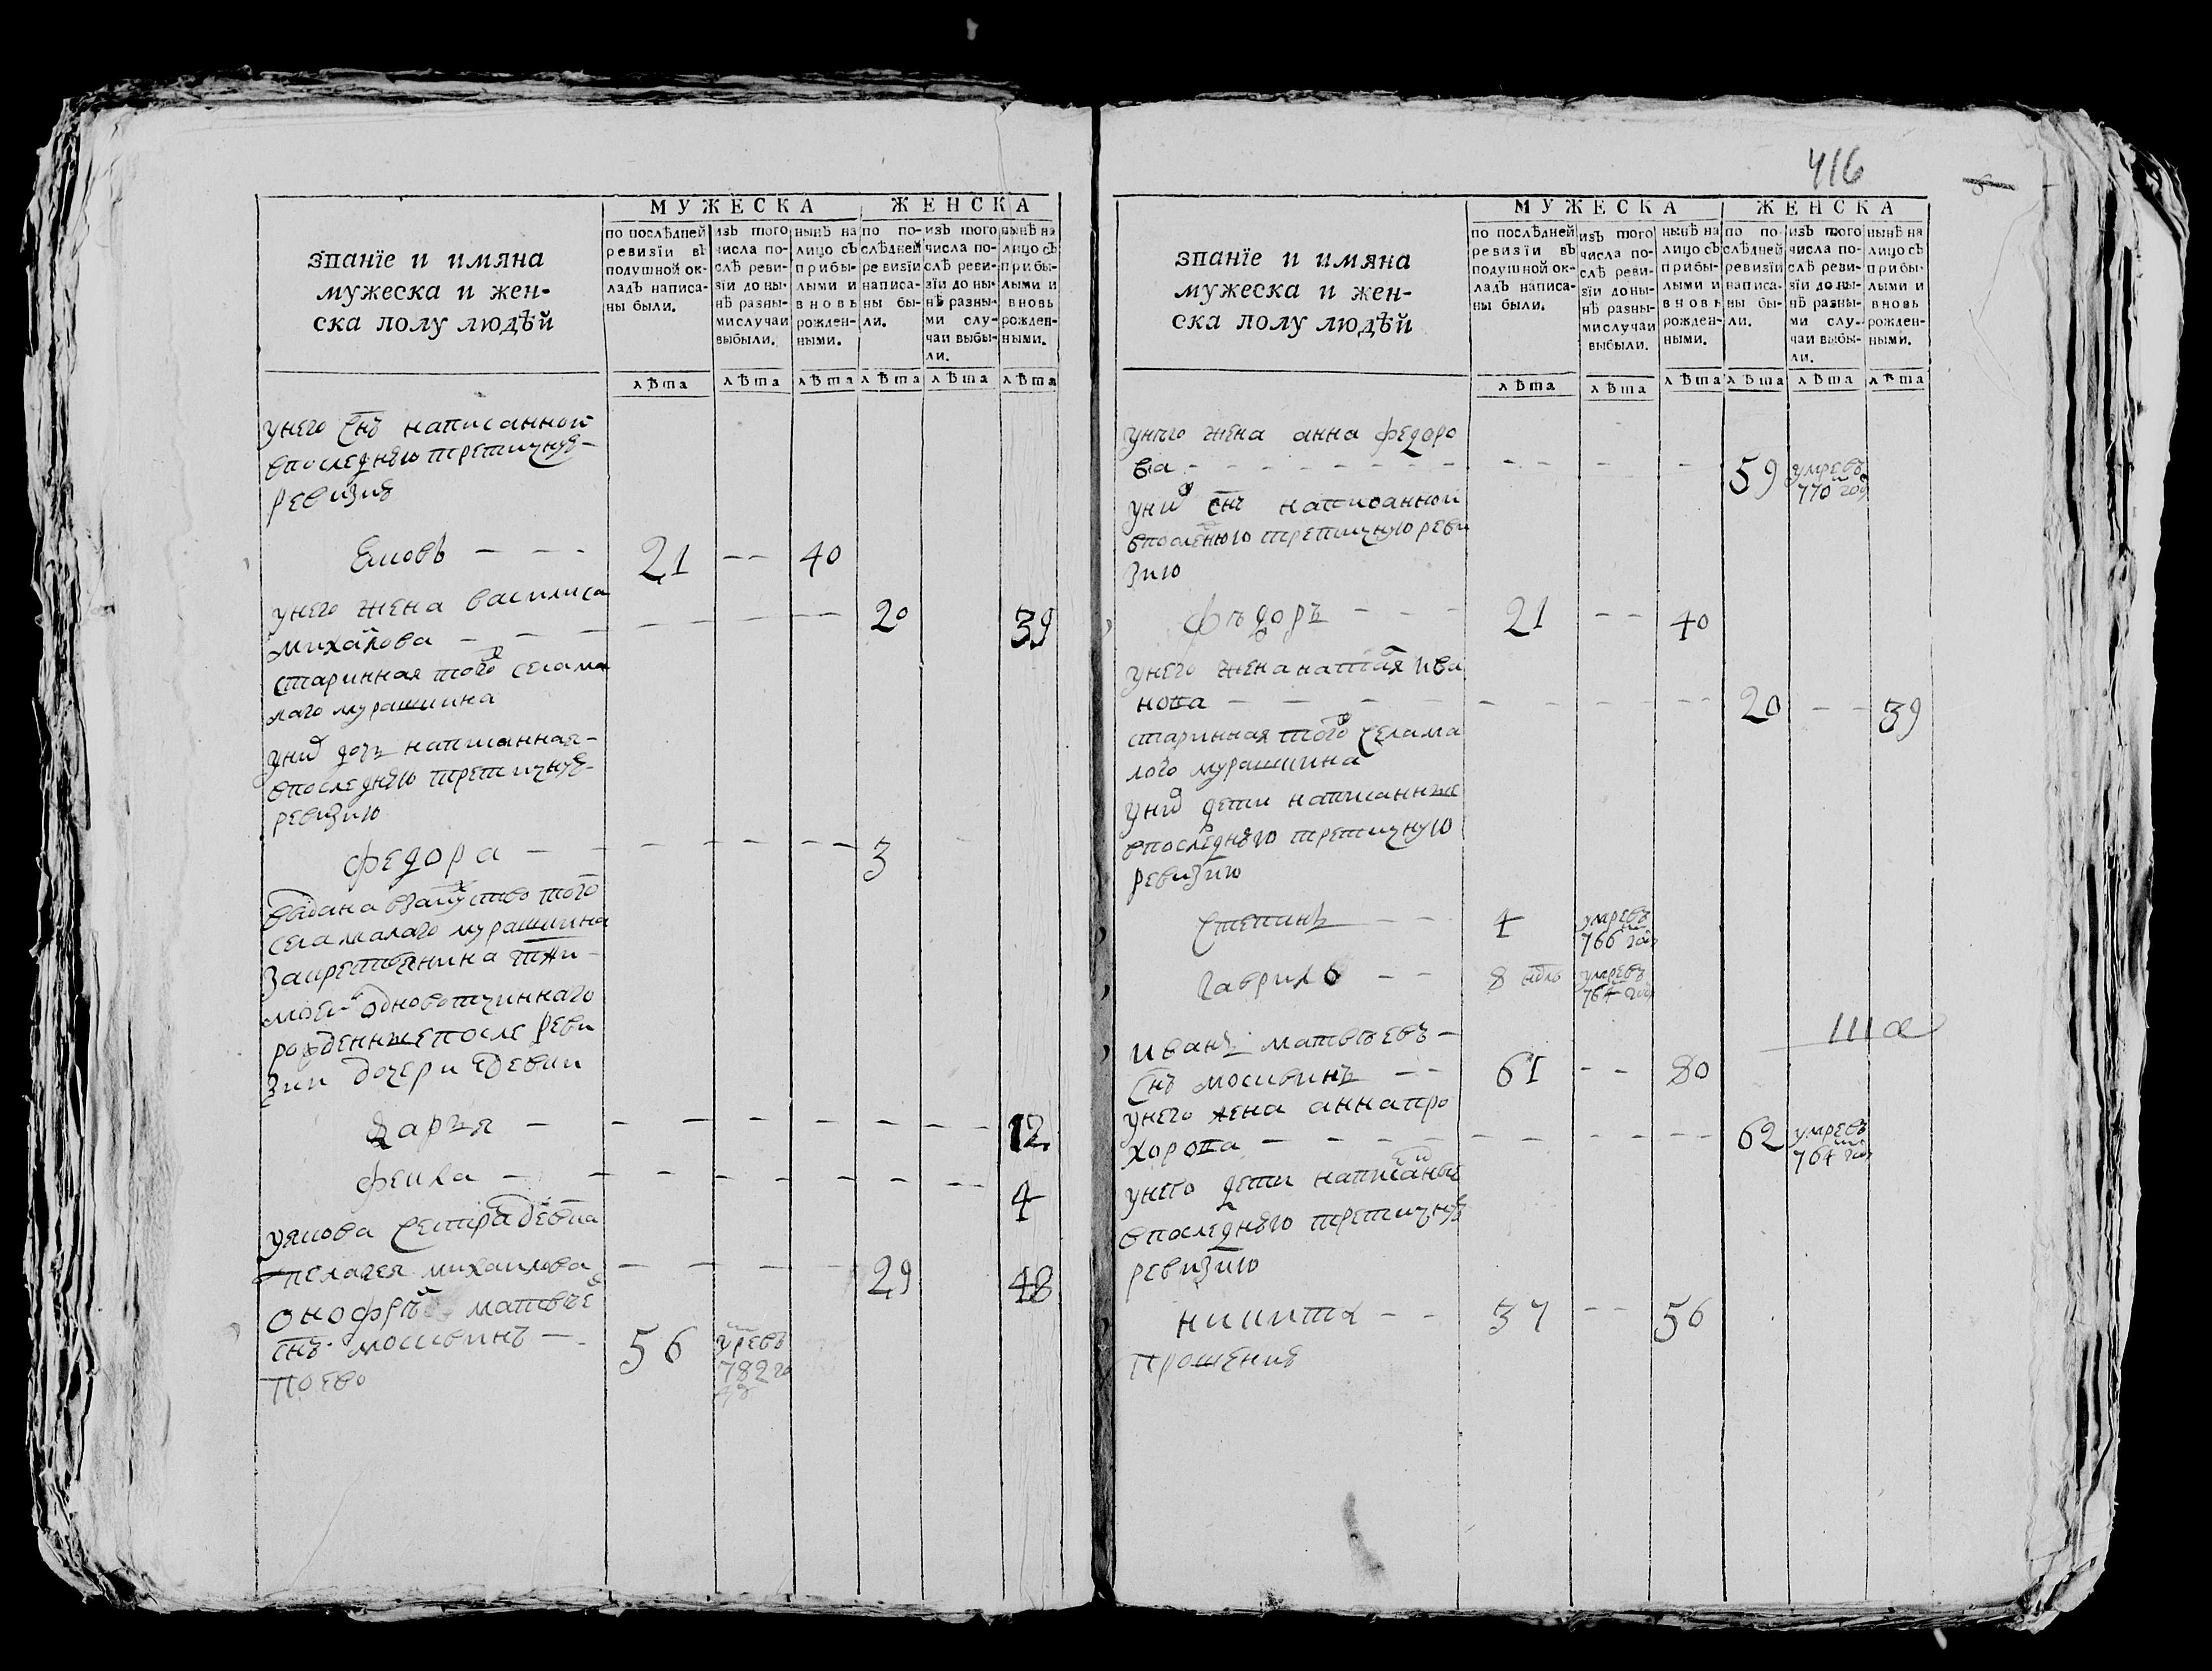 МУЖЕСКА ЖЕНСКА
званїе и имяна
мужеска и жен-
ска полу людѣй
по послѣдней
ревизїи въ
подушной ок-
ладъ написа-
ны были.
изъ того
числа по-
слѣ реви-
зїи до ны-
нѣ разны-
ми случаи
выбыли.
нынѣ на
лицо съ
прибы-
лыми и
вновь
рожден-
ными.
по по-
слѣдней
ревизїи
написа-
ны бы-
ли.
изъ того
числа по-
слѣ реви-
зїи до ны-
нѣ разны-
ми слу-
чаи выбы-
ли.
нынѣ на
лицо съ
прибы-
лыми и
вновь
рожден-
ными.
лѣта лѣта лѣта лѣта лѣта лѣта
унего снъ написанной
впоследнюю третичную
ревизию
21 -- 40
унего жена василиса
михайлова - - - 20 39
старинная того села ма
лаго мурашкина
уних дочь написанная
впоследнюю третичную
ревизию
федора - - - 3
выдана взамужство того
села малаго мурашкина
закрестьянина
одновотчиннаго
рожденные после реви
зии дочери девки
дарья - - - 12
фекла - - - 4
уякова сестра девка
пелагея михайлова - - - 29 48
онофрей матвѣе
снъ москвинъ - 56 умре въ
782 го
ду
поево
416
МУЖЕСКА ЖЕНСКА
званїе и имяна
мужеска и жен-
ска полу людѣй
по послѣдней
ревизїи въ
подушной ок-
ладъ написа-
ны были.
изъ того
числа по-
слѣ реви-
зїи до ны-
нѣ разны-
ми случаи
выбыли.
нынѣ на
лицо съ
прибы-
лыми и
вновь
рожден-
ными.
по по-
слѣдней
ревизїи
написа-
ны бы-
ли.
изъ того
числа по-
слѣ реви-
зїи до ны-
нѣ разны-
ми слу-
чаи выбы-
ли.
нынѣ на
лицо съ
прибы-
лыми и
вновь
рожден-
ными.
лѣта лѣта лѣта лѣта лѣта лѣта
унего жена анна федоро
ва - - - 59 умре въ
770 году
уних снъ написанной
впоследнюю третичную реви
зию
федоръ - - - 21 -- 40
унего жена наталя ива
нова - - - 20 -- 39
старинная того села ма
лого мурашкина
уних дети написанные
впоследнюю третичную
ревизию
4 умре въ
766 году
гаврила -- 8 умре въ
764 году
иванъ матвѣевъ -
снъ москвинъ -- 61 -- 80
унего жена анна про
хорова - - - 62 умре въ
764 году
унего дети написаные
впоследнюю третичную
ревизию
никита -- 37 -- 56
прошению